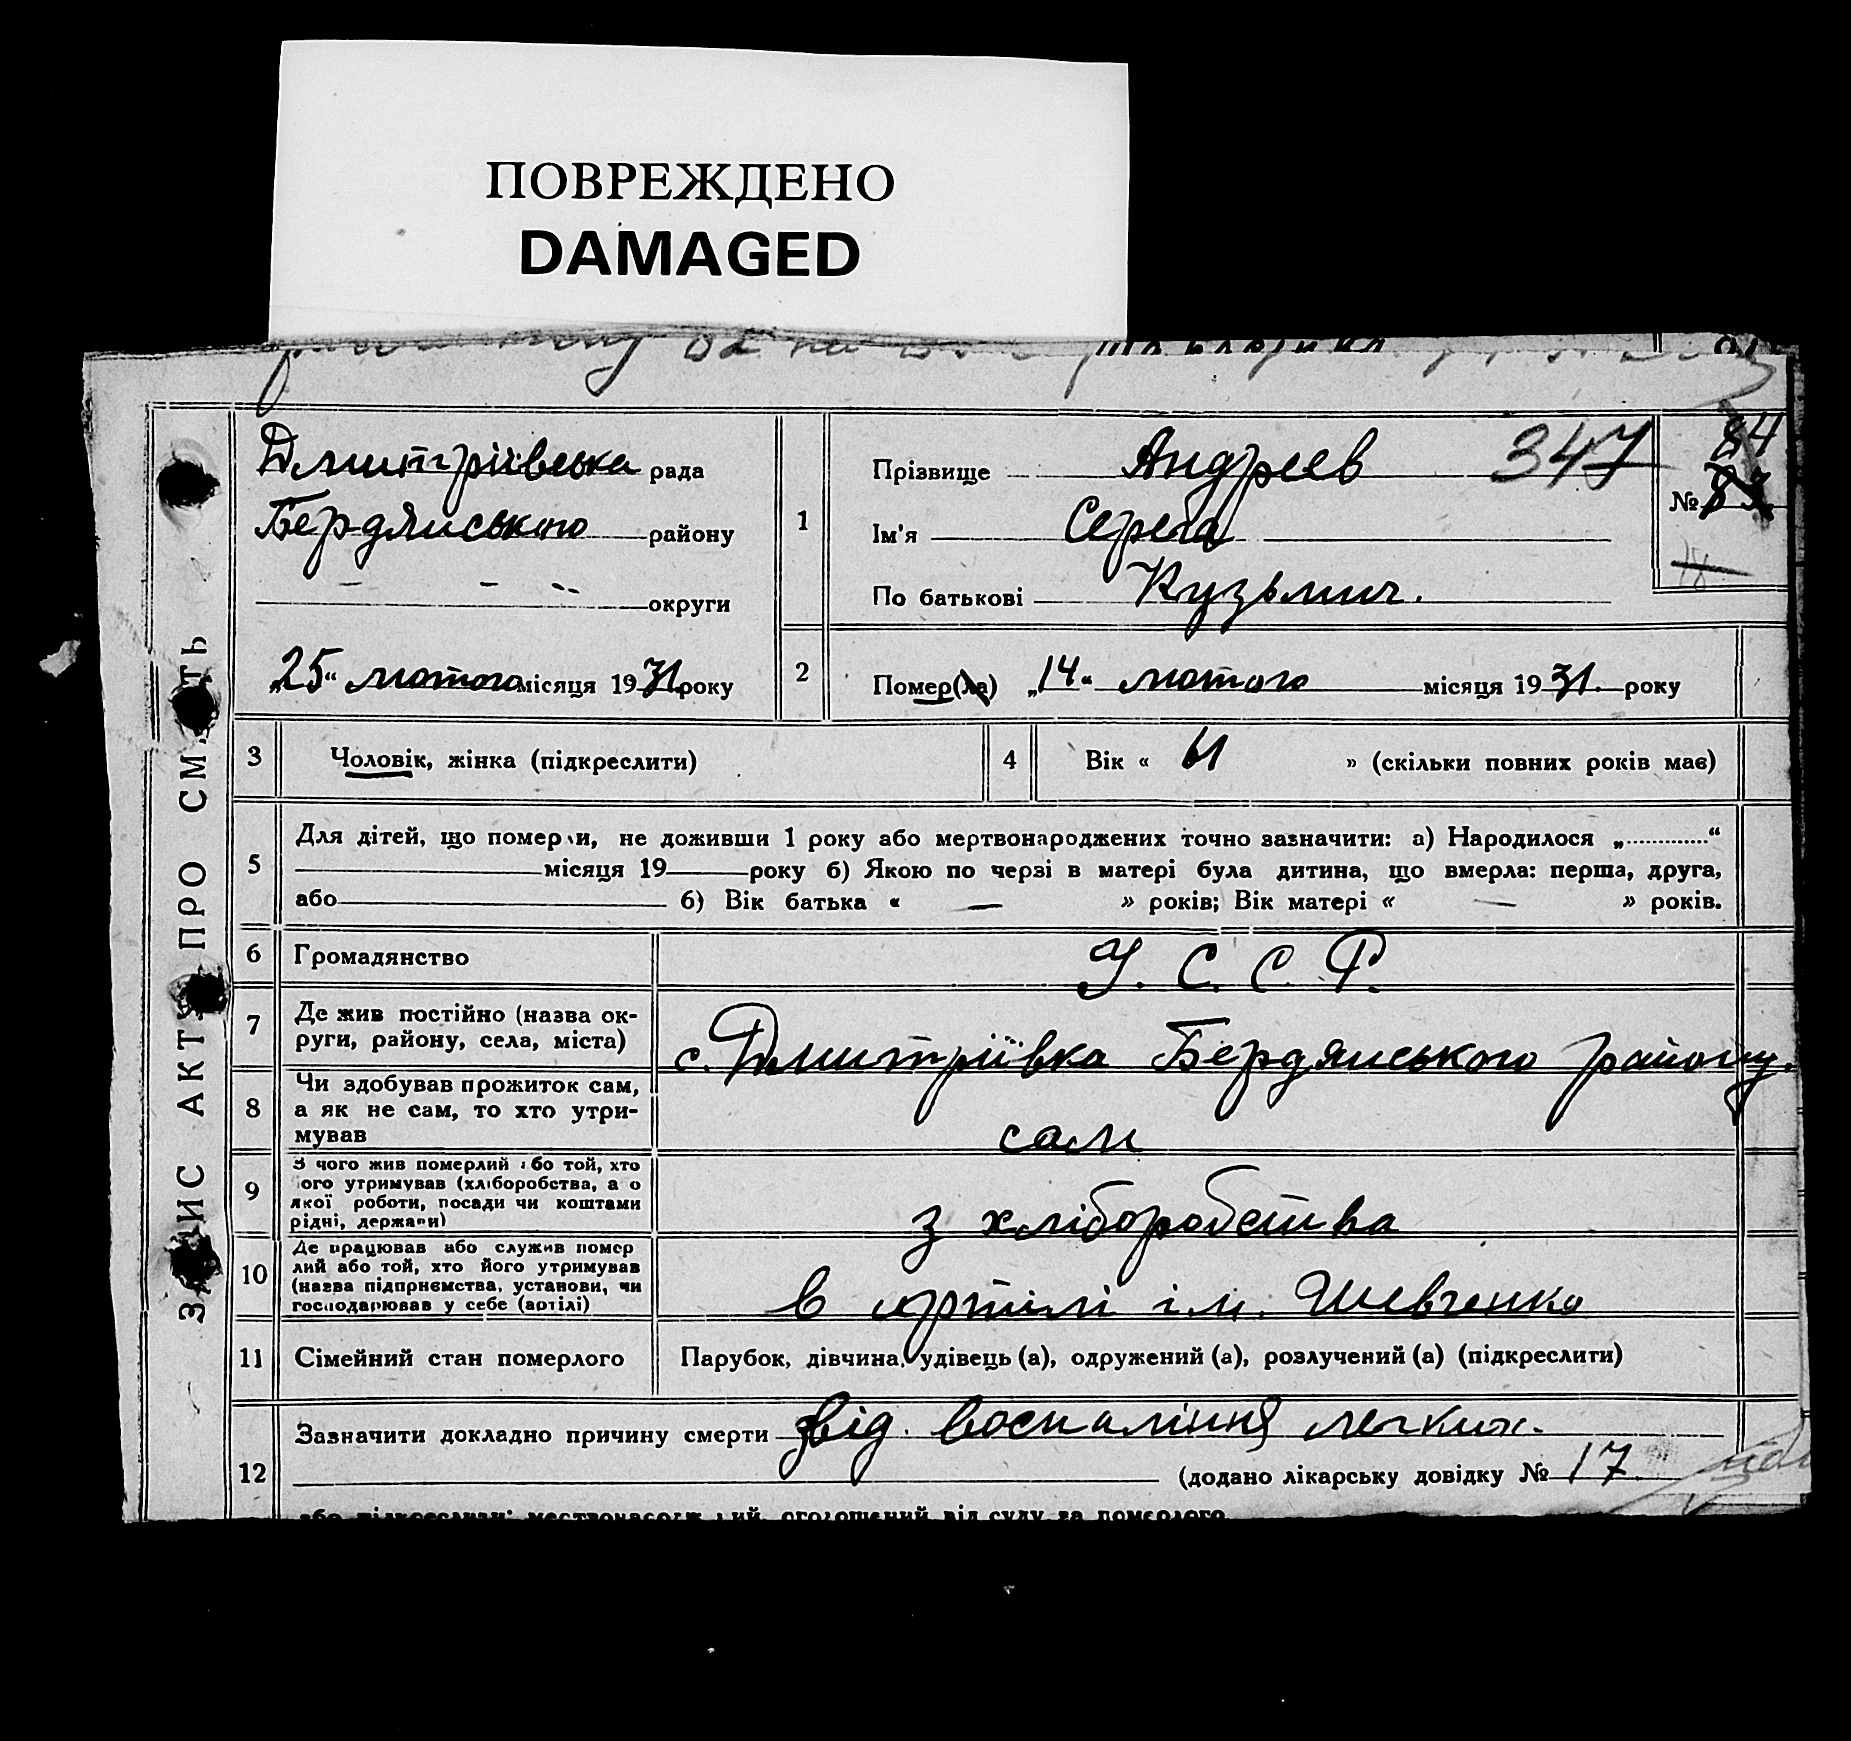 ПОВРЕЖДЕНО
DAMAGED
Дмитріївська рада
Бердянського району
округи
„25“ лютого місяця 1931 року
1
Прізвище Андреев 347
Ім'я
По батькові Кузьмич.
84
№ 83
2
Помер(ла) „14“ лютого місяця 1931. року
ЗАПИС АКТУ ПРО СМЕРТЬ
3 Чоловік, жінка (підкреслити)
4 Вік « 61 » (скільки повних років має)
5
Для дітей, що померли, не доживши 1 року або мертвонароджених точно зазначити: а) Народилося „.............“
місяця 19 року б) Якою по черзі в матері була дитина, що вмерла: перша, друга,
або б) Вік батька « — » років; Вік матері « — » років.
6 Громадянство У. С. С. Р.
7
Де жив постійно (назва ок-
руги, району, села, міста) с. Дмитріївка Бердянського району.
8
Чи здобував прожиток сам,
а як не сам, то хто утри-
мував сам
9
З чого жив померлий або той, хто
його утримував (хліборобства, а о
якої роботи, посади чи коштами
рідні, держави) з хліборобства
10
Де працював або служив помер
лий або той, хто його утримував
(назва підприємства, установи, чи
господарював у себе (артілі) в артілі ім. Шевченко
11 Сімейний стан померлого Парубок, дівчина, удівець (а), одружений (а), розлучений (а) (підкреслити)
12
Зазначити докладно причину смерти від воспаління легких.
(додано лікарську довідку № 17